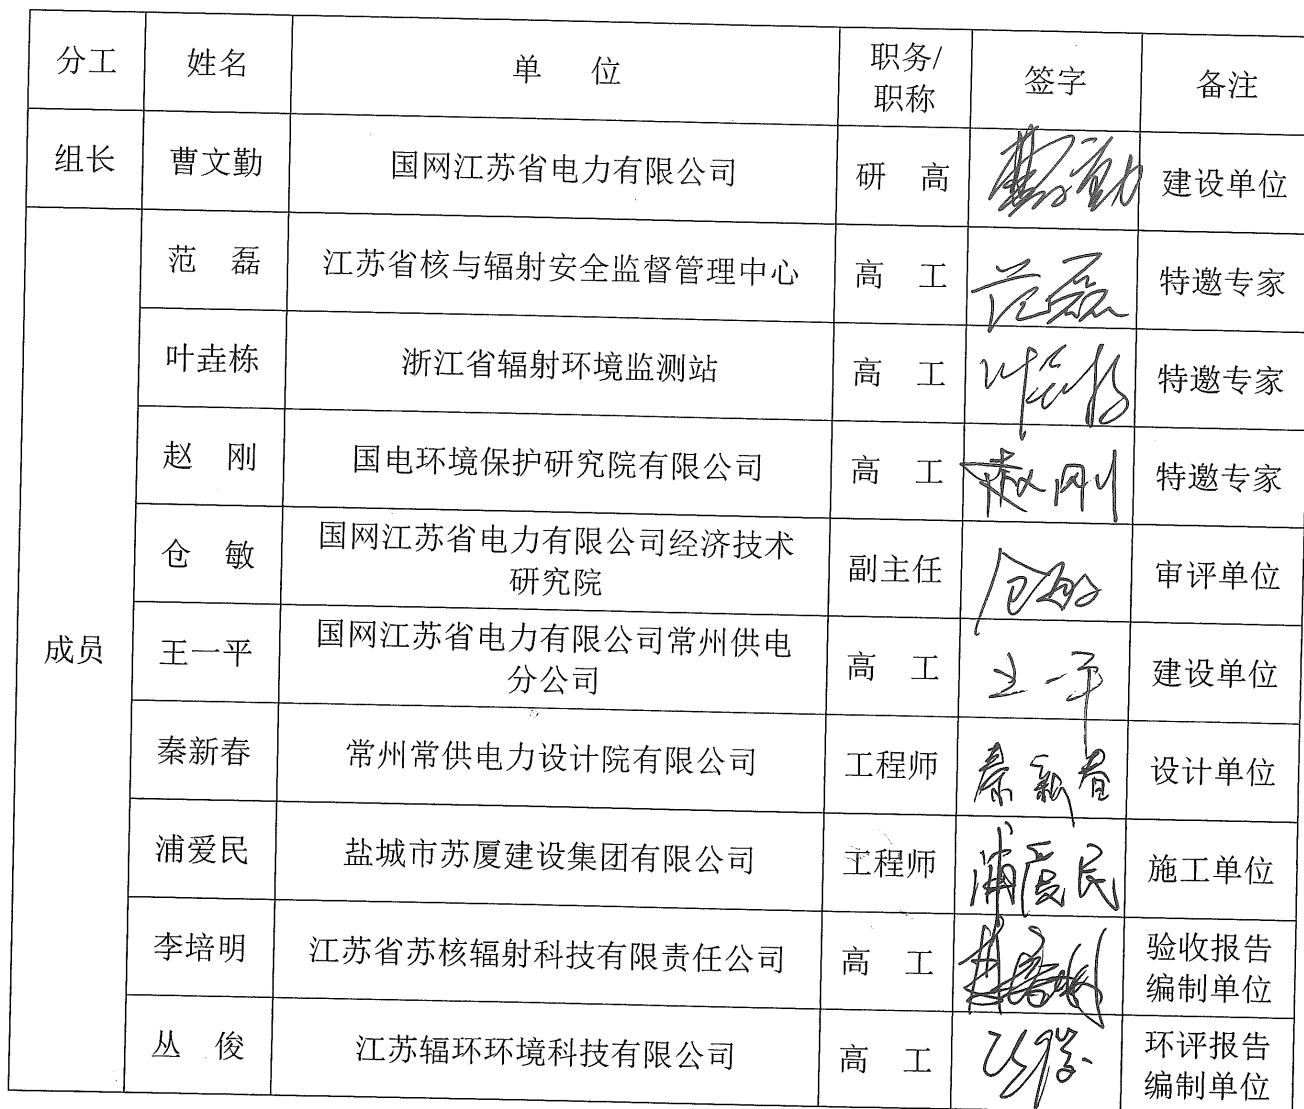 分工 姓名 单 位 职务/职称 签字 备注
组长 曹文勤 国网江苏省电力有限公司 研 高 曹文勤 建设单位
成员 范 磊 江苏省核与辐射安全监督管理中心 高 工 范磊 特邀专家
叶垚栋 浙江省辐射环境监测站 高 工 叶垚栋 特邀专家
赵 刚 国电环境保护研究院有限公司 高 工 赵刚 特邀专家
仓 敏 国网江苏省电力有限公司经济技术
研究院 副主任 仓敏 审评单位
王一平 国网江苏省电力有限公司常州供电
分公司 高 工 王一平 建设单位
秦新春 常州常供电力设计院有限公司 工程师 秦新春 设计单位
浦爱民 盐城市苏厦建设集团有限公司 工程师 浦爱民 施工单位
李培明 江苏省苏核辐射科技有限责任公司 高 工 验收报告
编制单位
丛 俊 江苏辐环环境科技有限公司 高 工 丛俊 环评报告
编制单位